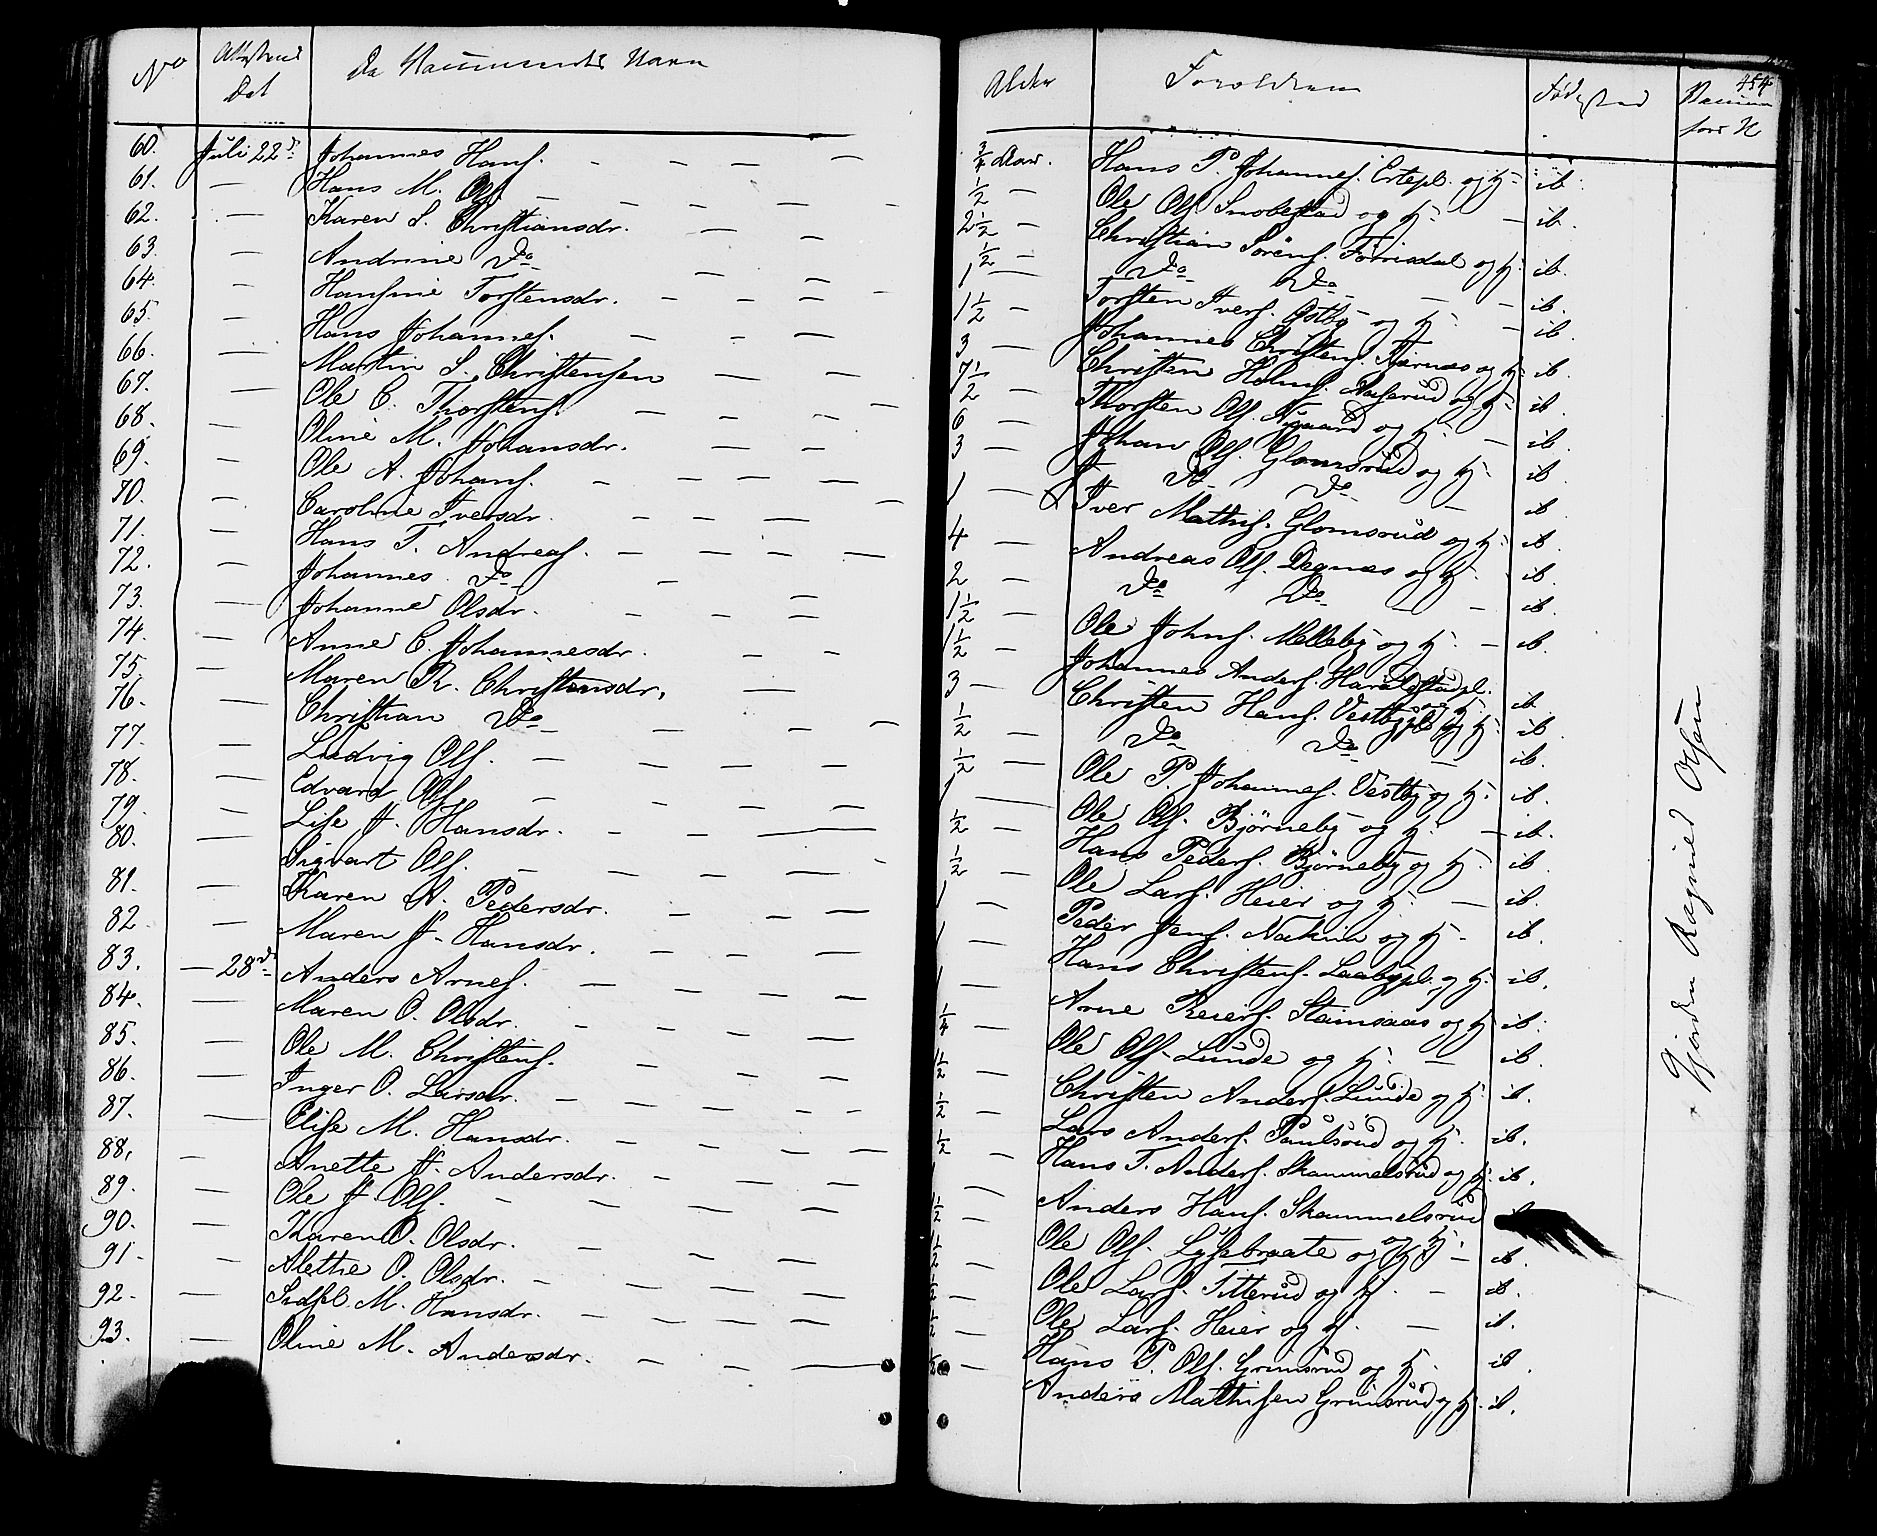 No Attestens Dat De Vaccineredes Navn
60. Juli 22d Johannes Hans.
61. Hans M. Ols.
62. Karen S. Christiansdr.
63. Andrine Do
64. Hansine Torstensdr.
65. Hans Johannes.
66. Martin S. Christensen
67. Ole C. Thorstens.
68. Oline M. Johansdr.
69. Ole A. Johans.
70. Caroline Iversdr.
71. Hans T. Andreas.
72. Johannes Do
73. Johanne Olsdr.
74. Anne C. Johannesdr.
75. Maren R. Christensdr.
76. Christian Do
77. Ludvig Ols.
78. Edvard Ols.
79. Lise J. Hansdr.
80. Sigvart Ols.
81. Karen A. Pedersdr.
82. Maren J. Hansdr.
83. — 28d Anders Arnes.
84. Maren O. Olsdr.
85. Ole M. Christens.
86. Inger O. Larsdr.
87. Elise M. Hansdr.
88. Anette J. Andersdr.
89. Ole J. Ols.
90. Karen O. Olsdr.
91. Alethe O. Olsdr.
92. Sidsel M. Hansdr.
93. Oline M. Andersdr.
454
Alder Forældrene Fødested
3/4 Aar. Hans P. Johannes. Ertepl. og H. ib.
1/2 — Ole Ols. Snobestad og H. — ib.
2 1/2 — Christian Sörens. og H. ib.
1/2 — Do Do — — ib.
1 — Torsten Ivers. Østby og H. — ib.
1 1/2 — Johannes Christens. og H. ib.
3 — Christen Holms. Aaserud og H. ib.
7 1/2 — Thorsten Ols. Nygaard og H. — ib.
1/2 — Johan Ols. Glomsrud og H. ib.
6 — Do Do — ib.
3 — Iver Mathis. Glomsrud og H. ib.
1 — Andreas Ols. Degnæs og H. — ib.
4 — Do Do — — ib.
2 — Ole Johns. Melleby og H. — ib.
1 1/2 — Johannes Anders. Haraldstadpl. og H. ib.
1 1/2 — Christen Hans. Vestbypl. og H. ib.
3 — Do Do — ib.
1/2 — Ole P. Johannes. Vestby og H. ib.
1/2 — Ole Ols. Björneby og H. — ib.
1 — Hans Peders. Björneby og H. ib.
1/2 — Ole Lars. Heier og H. — ib.
1/2 — Peder Jens. Nakim og H. — ib.
1 — Hans Christens. Laabypl. og H. ib.
1 — Arne Reiers. Stamsaas og H. ib.
1 — Ole Ols. Lunde og H. — ib.
1/4 — Christen Anders. Lunde og H. ib.
1/2 — Lars Anders. Paulsrud og H. ib.
1/2 — Hans T. Anders. Skammelsrud og H. ib.
1/2 — Anders Hans. Skammelsrud og H.
— Ole Ols. Lysebraate og H. — ib.
1/2 — Ole Lars. Titterud og H. — ib.
1/2 — Ole Lars. Heier og H. — ib.
1/2 — Hans P. Ols. Grimsrud og H. ib.
1/2 — Anders Mathisen Grimsrud og H. ib.
Ragnild Olsen